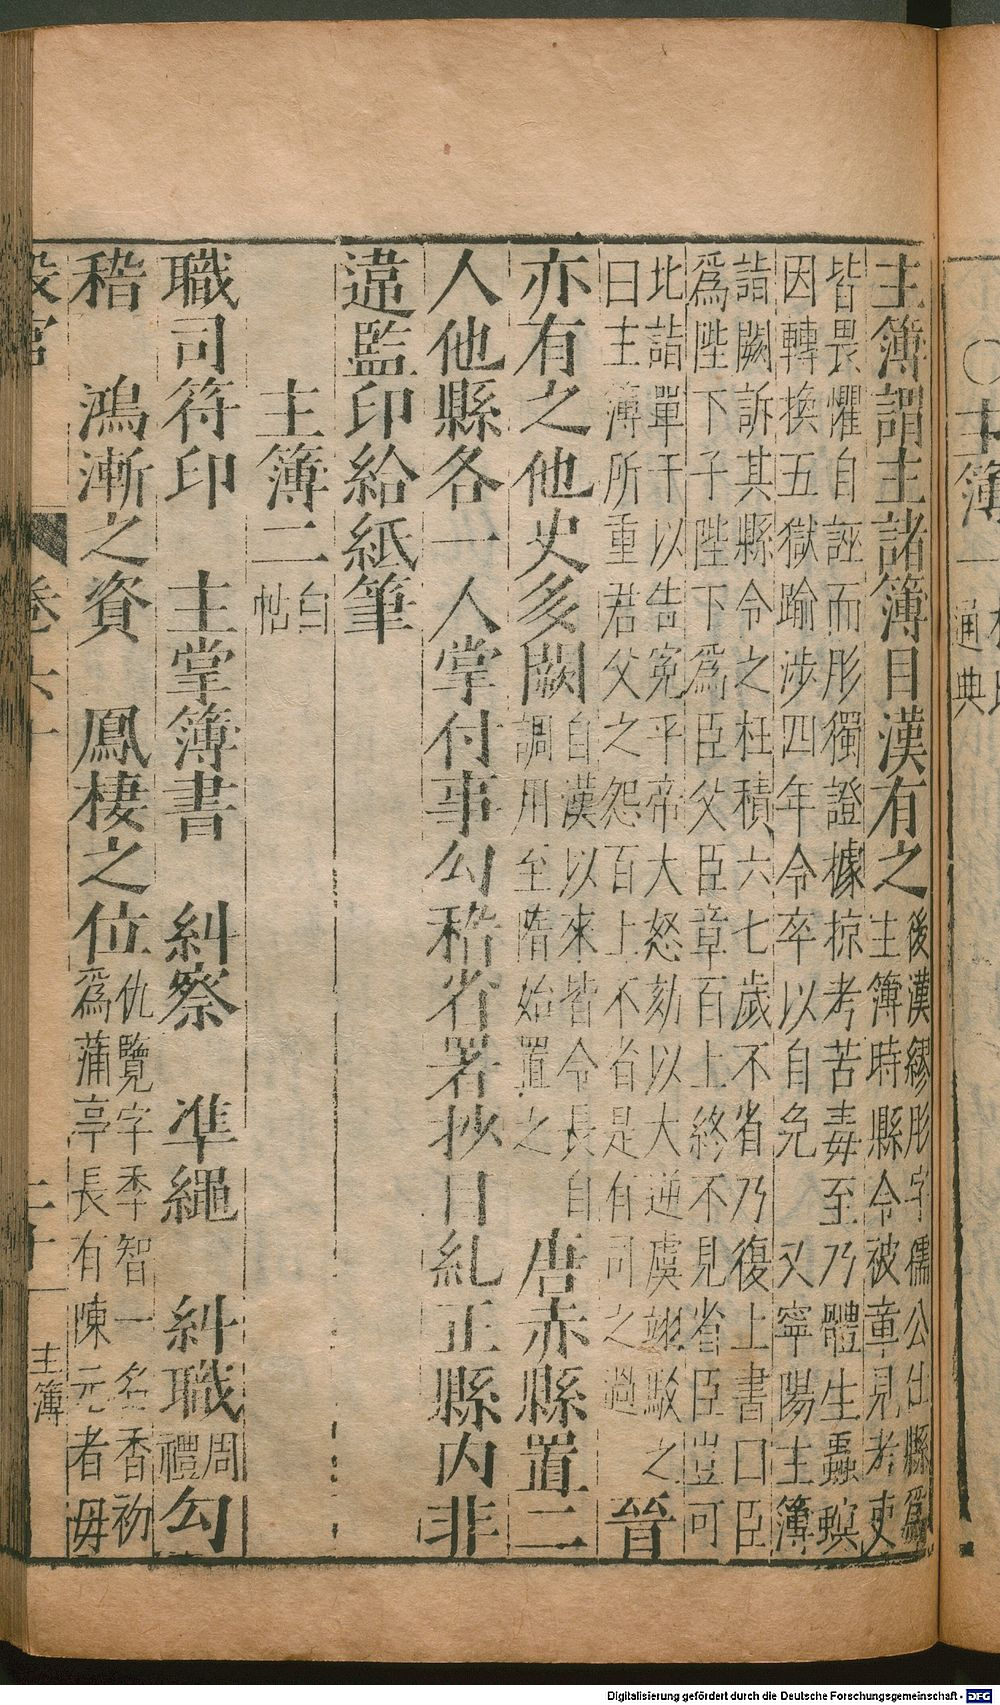 ○主簿一
通典
主簿謂主諸簿目漢有之
後漢繆肜字儒公仕縣爲
主簿時縣令被章見考吏
皆畏懼自誣而肜獨證據掠考苦毒至乃體生蟲螟
因轉換五獄踰涉四年令卒以自免 又寧陽主簿
詣闕訴其縣令之枉積六七歲不省乃復上書曰臣
爲陛下子陛下爲臣父臣章百上終不見省臣豈可
北詣單于以告冤乎帝大怒劾以大逆虞翊駁之
曰主簿所重君父之怨百上不省是有司之過
晉
亦有之他史多闕
自漢以來皆令長自
調用至隋始置之
唐赤縣置二
人他縣各一人掌付事勾稽省署抄目糺正縣內非
違監印給紙筆
主簿二 白帖
職司符印 主掌簿書 糾察 準繩 糾職 周禮 勾
稽 鴻漸之資 鳳棲之位
仇覽字季智一名香初
爲蒲亭長有陳元者毋
主簿
Digitalisierung gefördert durch die Deutsche Forschungsgemeinschaft - DFG